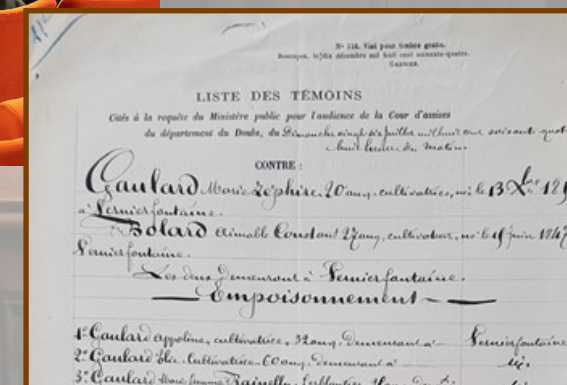 N° 114. Visé pour timbre gratis.
Besançon, le décembre mil huit cent soixante-quatre.
LISTE DES TÉMOINS
Cités à la requête du Ministère public pour l'audience de la Cour d'assises
du département du Doubs, du Dimanche vingt-six juillet mil huit cent soixante quat
huit heures du matin.
CONTRE :
Gaulard Marie Zéphire, 20 ans, cultivatrice, née le 13 Xbre 18
à Vernierfontaine.
Bolard Aimable Constant 27 ans, cultivateur, né le 15 juin 1847
Vernierfontaine.
Les deux demeurant à Vernierfontaine.
Empoisonnement
1° Gaulard appoline, cultivatrice, 32 ans, demeurant à Vernierfontaine
2° Gaulard Élie, Cultivatrice 60 ans, demeurant à id.
3° Gaulard